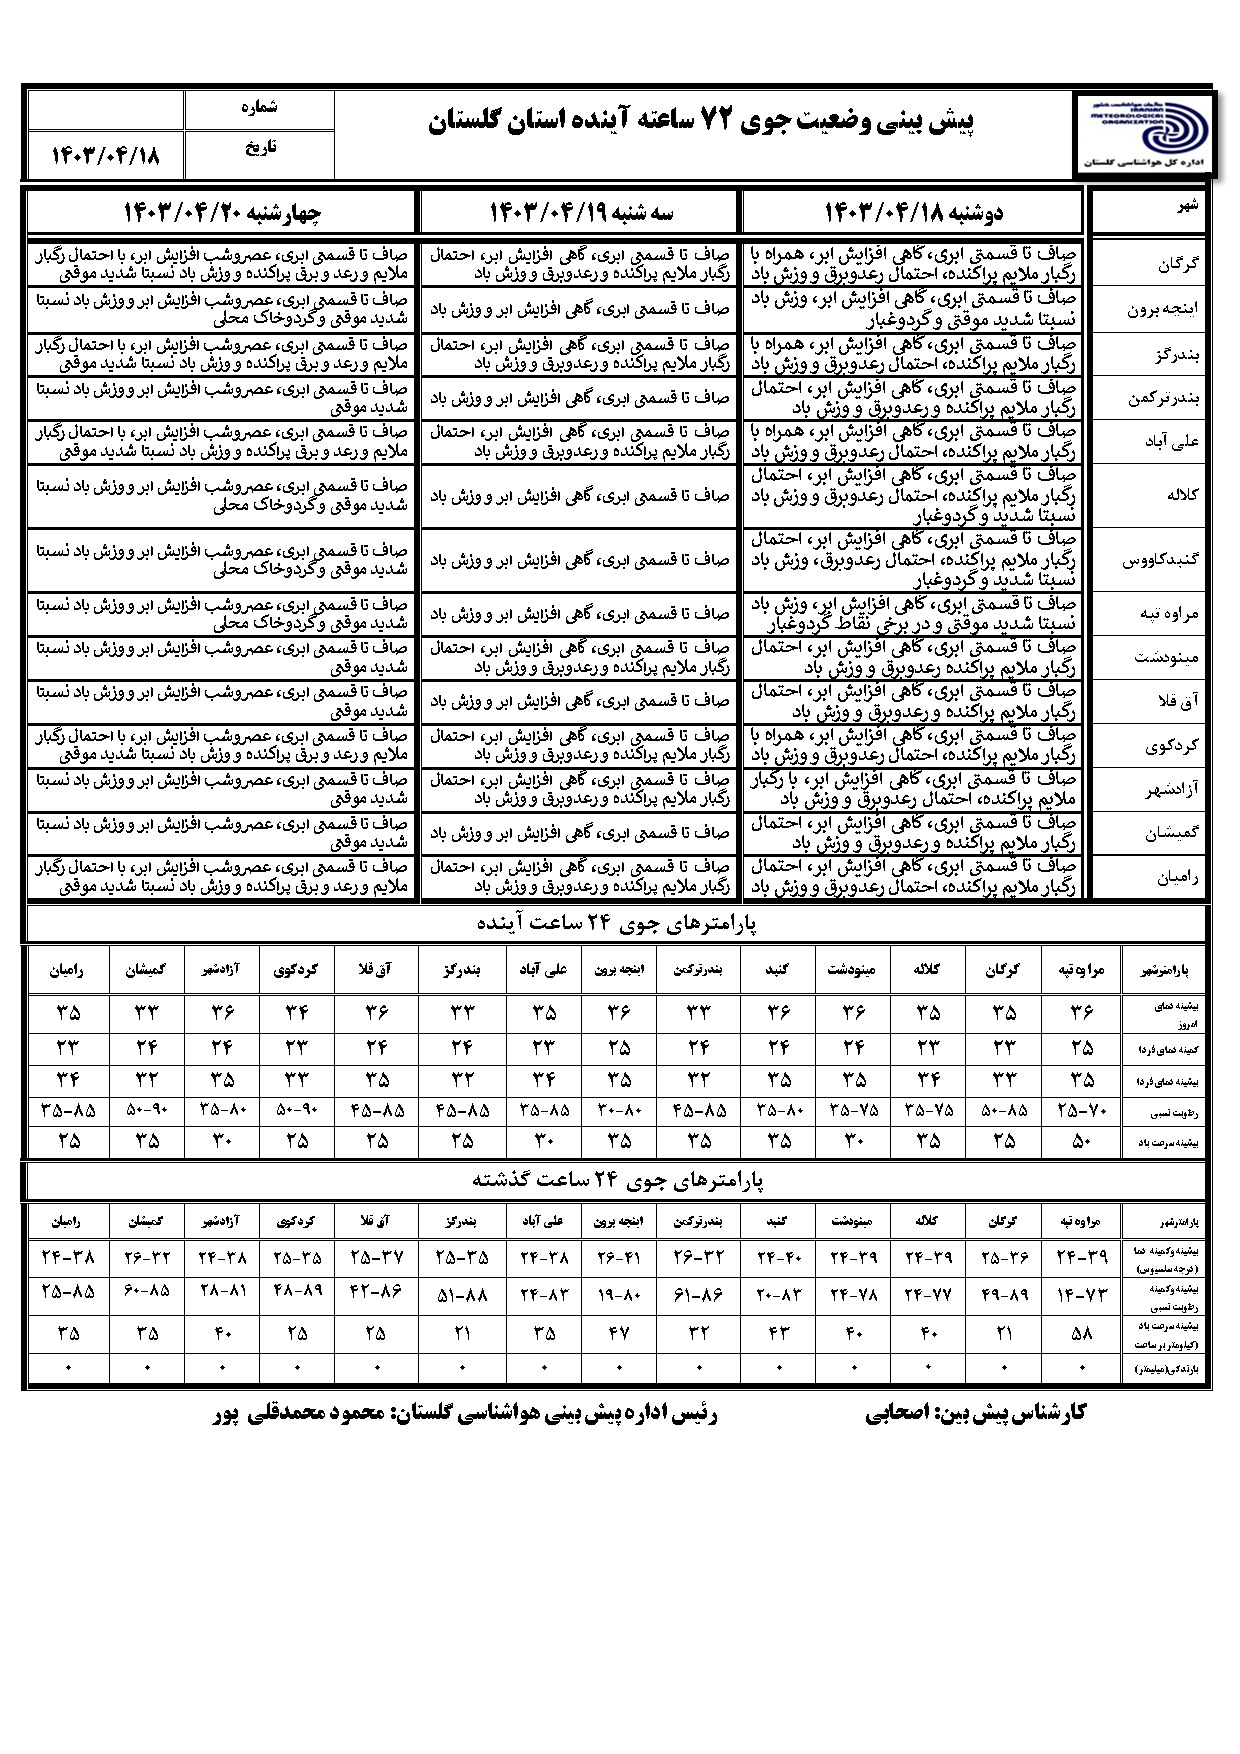 سازمان هواشناسی کشور
IRANIAN
METEOROLOGICAL
ORGANIZATION
اداره کل هواشناسی گلستان
پیش بینی وضعیت جوی ۷۲ ساعته آینده استان گلستان
شماره
تاریخ ۱۴۰۳/۰۴/۱۸
شهر دوشنبه ۱۴۰۳/۰۴/۱۸ سه شنبه ۱۴۰۳/۰۴/۱۹ چهارشنبه ۱۴۰۳/۰۴/۲۰
گرگان
صاف تا قسمتی ابری، گاهی افزایش ابر، همراه با
رگبار ملایم پراکنده، احتمال رعدوبرق و وزش باد
صاف تا قسمتی ابری، گاهی افزایش ابر، احتمال
رگبار ملایم پراکنده و رعدوبرق و وزش باد
صاف تا قسمتی ابری، عصروشب افزایش ابر، با احتمال رگبار
ملایم و رعد و برق پراکنده و وزش باد نسبتا شدید موقتی
اینچه برون
صاف تا قسمتی ابری، گاهی افزایش ابر، وزش باد
نسبتا شدید موقتی و گردوغبار
صاف تا قسمتی ابری، گاهی افزایش ابر و وزش باد
صاف تا قسمتی ابری، عصروشب افزایش ابر و وزش باد نسبتا
شدید موقتی و گردوخاک محلی
بندرگز
صاف تا قسمتی ابری، گاهی افزایش ابر، همراه با
رگبار ملایم پراکنده، احتمال رعدوبرق و وزش باد
صاف تا قسمتی ابری، گاهی افزایش ابر، احتمال
رگبار ملایم پراکنده و رعدوبرق و وزش باد
صاف تا قسمتی ابری، عصروشب افزایش ابر، با احتمال رگبار
ملایم و رعد و برق پراکنده و وزش باد نسبتا شدید موقتی
بندرترکمن
صاف تا قسمتی ابری، گاهی افزایش ابر، احتمال
رگبار ملایم پراکنده و رعدوبرق و وزش باد
صاف تا قسمتی ابری، گاهی افزایش ابر و وزش باد
صاف تا قسمتی ابری، عصروشب افزایش ابر و وزش باد نسبتا
شدید موقتی
علی آباد
صاف تا قسمتی ابری، گاهی افزایش ابر، همراه با
رگبار ملایم پراکنده، احتمال رعدوبرق و وزش باد
صاف تا قسمتی ابری، گاهی افزایش ابر، احتمال
رگبار ملایم پراکنده و رعدوبرق و وزش باد
صاف تا قسمتی ابری، عصروشب افزایش ابر، با احتمال رگبار
ملایم و رعد و برق پراکنده و وزش باد نسبتا شدید موقتی
کلاله
صاف تا قسمتی ابری، گاهی افزایش ابر، احتمال
رگبار ملایم پراکنده، احتمال رعدوبرق و وزش باد
نسبتا شدید و گردوغبار
صاف تا قسمتی ابری، گاهی افزایش ابر و وزش باد
صاف تا قسمتی ابری، عصروشب افزایش ابر و وزش باد نسبتا
شدید موقتی و گردوخاک محلی
گنبدکاووس
صاف تا قسمتی ابری، گاهی افزایش ابر، احتمال
رگبار ملایم پراکنده، احتمال رعدوبرق، وزش باد
نسبتا شدید و گردوغبار
صاف تا قسمتی ابری، گاهی افزایش ابر و وزش باد
صاف تا قسمتی ابری، عصروشب افزایش ابر و وزش باد نسبتا
شدید موقتی و گردوخاک محلی
مراوه تپه
صاف تا قسمتی ابری، گاهی افزایش ابر، وزش باد
نسبتا شدید موقتی و در برخی نقاط گردوغبار
صاف تا قسمتی ابری، گاهی افزایش ابر و وزش باد
صاف تا قسمتی ابری، عصروشب افزایش ابر و وزش باد نسبتا
شدید موقتی و گردوخاک محلی
مینودشت
صاف تا قسمتی ابری، گاهی افزایش ابر، احتمال
رگبار ملایم پراکنده رعدوبرق و وزش باد
صاف تا قسمتی ابری، گاهی افزایش ابر، احتمال
رگبار ملایم پراکنده و رعدوبرق و وزش باد
صاف تا قسمتی ابری، عصروشب افزایش ابر و وزش باد نسبتا
شدید موقتی
آق قلا
صاف تا قسمتی ابری، گاهی افزایش ابر، احتمال
رگبار ملایم پراکنده و رعدوبرق و وزش باد
صاف تا قسمتی ابری، گاهی افزایش ابر و وزش باد
صاف تا قسمتی ابری، عصروشب افزایش ابر و وزش باد نسبتا
شدید موقتی
کردکوی
صاف تا قسمتی ابری، گاهی افزایش ابر، همراه با
رگبار ملایم پراکنده، احتمال رعدوبرق و وزش باد
صاف تا قسمتی ابری، گاهی افزایش ابر، احتمال
رگبار ملایم پراکنده و رعدوبرق و وزش باد
صاف تا قسمتی ابری، عصروشب افزایش ابر، با احتمال رگبار
ملایم و رعد و برق پراکنده و وزش باد نسبتا شدید موقتی
آزادشهر
صاف تا قسمتی ابری، گاهی افزایش ابر، با رگبار
ملایم پراکنده، احتمال رعدوبرق و وزش باد
صاف تا قسمتی ابری، گاهی افزایش ابر، احتمال
رگبار ملایم پراکنده و رعدوبرق و وزش باد
صاف تا قسمتی ابری، عصروشب افزایش ابر و وزش باد نسبتا
شدید موقتی
گمیشان
صاف تا قسمتی ابری، گاهی افزایش ابر، احتمال
رگبار ملایم پراکنده و رعدوبرق و وزش باد
صاف تا قسمتی ابری، گاهی افزایش ابر و وزش باد
صاف تا قسمتی ابری، عصروشب افزایش ابر و وزش باد نسبتا
شدید موقتی
رامیان
صاف تا قسمتی ابری، گاهی افزایش ابر، احتمال
رگبار ملایم پراکنده، احتمال رعدوبرق و وزش باد
صاف تا قسمتی ابری، گاهی افزایش ابر، احتمال
رگبار ملایم پراکنده و رعدوبرق و وزش باد
صاف تا قسمتی ابری، عصروشب افزایش ابر، با احتمال رگبار
ملایم و رعد و برق پراکنده و وزش باد نسبتا شدید موقتی
پارامترهای جوی ۲۴ ساعت آینده
پارامترشهر مراوه تپه گرگان کلاله مینودشت گنبد بندرترکمن اینچه برون علی آباد بندرگز آق قلا کردکوی آزادشهر گمیشان رامیان
بیشینه دمای امروز ۳۶ ۳۵ ۳۵ ۳۶ ۳۶ ۳۳ ۳۶ ۳۵ ۳۳ ۳۶ ۳۴ ۳۶ ۳۳ ۳۵
کمینه دمای فردا ۲۵ ۲۳ ۲۳ ۲۴ ۲۴ ۲۴ ۲۵ ۲۳ ۲۴ ۲۴ ۲۳ ۲۴ ۲۴ ۲۳
بیشینه دمای فردا ۳۵ ۳۳ ۳۴ ۳۵ ۳۵ ۳۲ ۳۵ ۳۴ ۳۲ ۳۵ ۳۳ ۳۵ ۳۲ ۳۴
رطوبت نسبی ۲۵-۷۰ ۵۰-۸۵ ۳۵-۷۵ ۳۵-۷۵ ۳۵-۸۰ ۴۵-۸۵ ۳۰-۸۰ ۳۵-۸۵ ۴۵-۸۵ ۴۵-۸۵ ۵۰-۹۰ ۳۵-۸۰ ۵۰-۹۰ ۳۵-۸۵
بیشینه سرعت باد ۵۰ ۲۵ ۳۵ ۳۰ ۳۵ ۳۵ ۳۵ ۳۰ ۲۵ ۲۵ ۲۵ ۳۰ ۳۵ ۲۵
پارامترهای جوی ۲۴ ساعت گذشته
پارامترشهر مراوه تپه گرگان کلاله مینودشت گنبد بندرترکمن اینچه برون علی آباد بندرگز آق قلا کردکوی آزادشهر گمیشان رامیان
بیشینه وکمینه دما (درجه سلسیوس) ۲۴-۳۹ ۲۵-۳۶ ۲۴-۳۹ ۲۴-۳۹ ۲۴-۴۰ ۲۶-۳۲ ۲۶-۴۱ ۲۴-۳۸ ۲۵-۳۵ ۲۵-۳۷ ۲۵-۳۵ ۲۴-۳۸ ۲۶-۳۲ ۲۴-۳۸
بیشینه وکمینه رطوبت نسبی ۱۴-۷۳ ۴۹-۸۹ ۲۴-۷۷ ۲۴-۷۸ ۲۰-۸۳ ۶۱-۸۶ ۱۹-۸۰ ۲۴-۸۳ ۵۱-۸۸ ۴۲-۸۶ ۴۸-۸۹ ۲۸-۸۱ ۶۰-۸۵ ۲۵-۸۵
بیشینه سرعت باد (کیلومتر بر ساعت ۵۸ ۲۱ ۴۰ ۴۰ ۴۳ ۳۲ ۴۷ ۳۵ ۲۱ ۲۵ ۲۵ ۴۰ ۳۵ ۳۵
بارندگی(میلیمتر) ۰ ۰ ۰ ۰ ۰ ۰ ۰ ۰ ۰ ۰ ۰ ۰ ۰ ۰
کارشناس پیش بین: اصحابی رئیس اداره پیش بینی هواشناسی گلستان: محمود محمدقلی پور